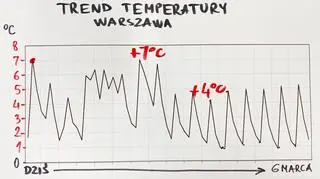 TREND TEMPERATURY
WARSZAWA
°C
8
7
6
5
4
3
2
1
0
+7°C
+4°C
DZIŚ
6 MARCA